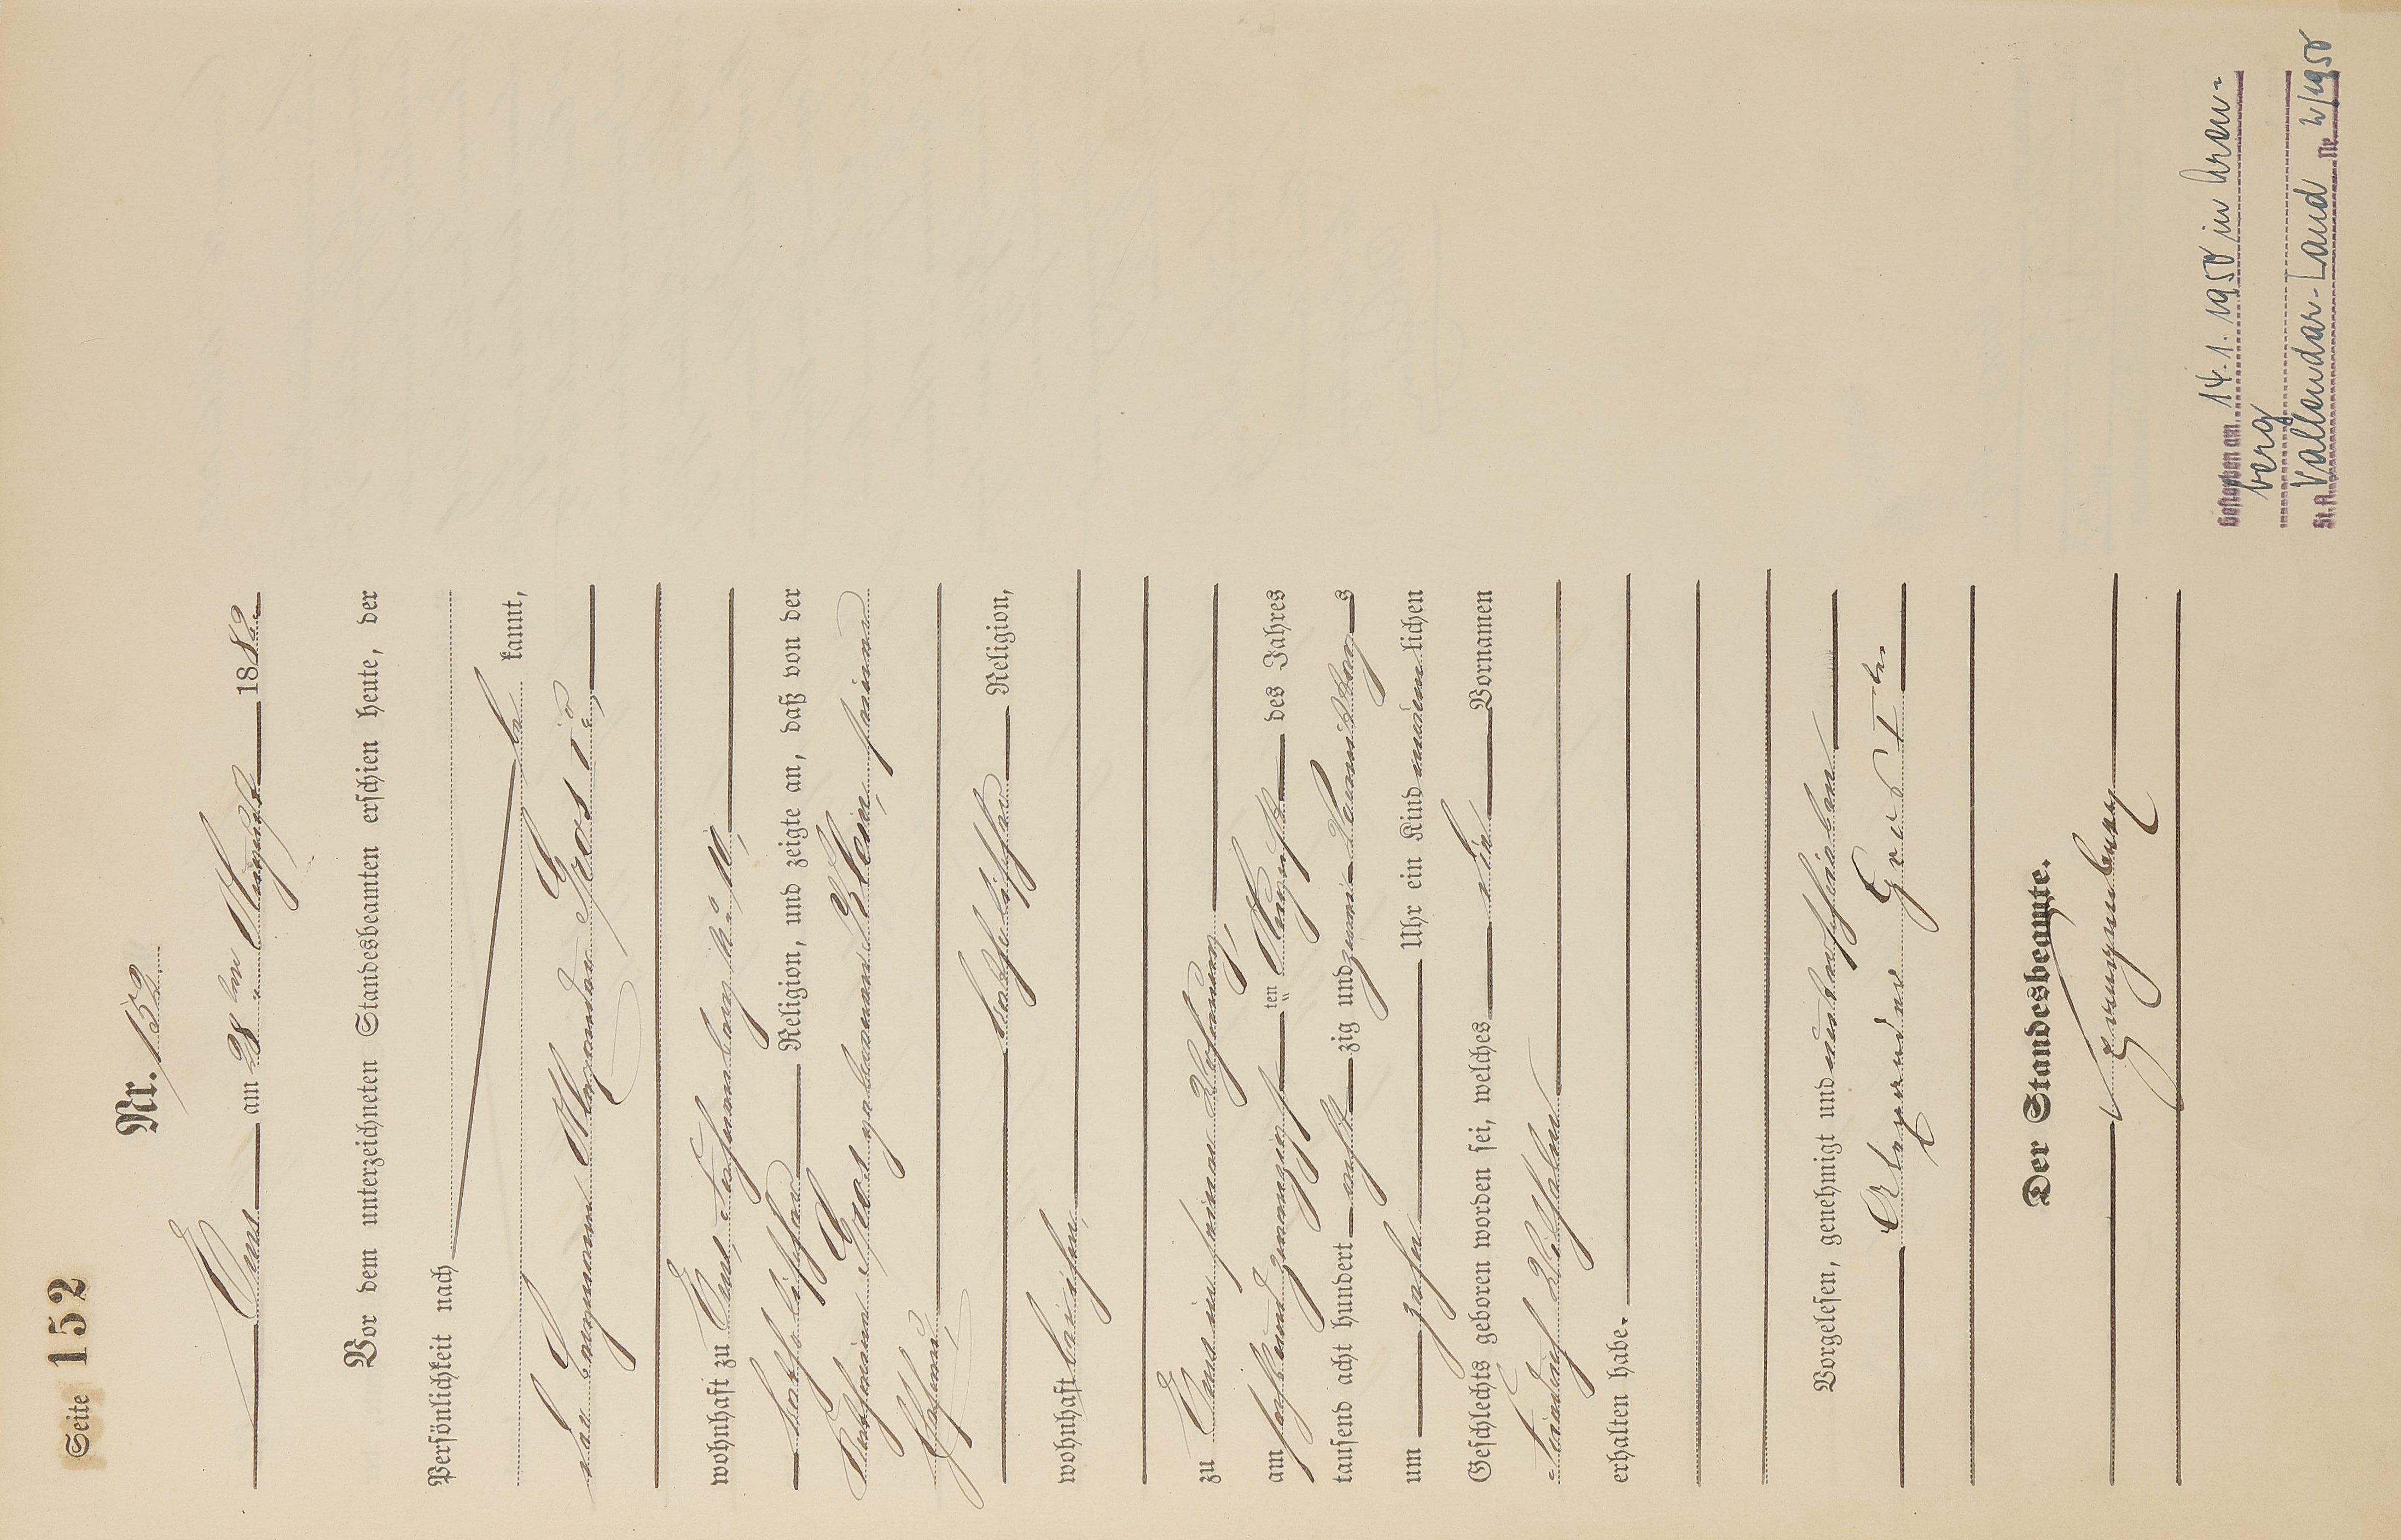 Seite 152
Nr. 152.
Ems am 28ten August 1882.
Vor dem unterzeichneten Standesbeamten erschien heute, der
Persönlichkeit nach
be kannt,
der Bergmann Alexander Gros I.,
wohnhaft zu Ems,
katholischer Religion, und zeigte an, daß von der
Katharina Gros geborenen Klein, seiner
Ehefrau,
katholischer Religion,
wohnhaft bei ihm,
zu Ems in seiner Wohnung,
am sechsundzwanzigsten August des Jahres
tausend acht hundert achtzig und zwei Vormittags
um zehn Uhr ein Kind männlichen
Geschlechts geboren worden sei, welches die Vornamen
Friedrich Wilhelm
erhalten habe.
Vorgelesen, genehmigt und unterschrieben
Alexander Gros Iter
Der Standesbeamte.
Gestorben am 14.1.1950 in Aren-
berg
St. A. Vallendar-Land Nr. 2/1950